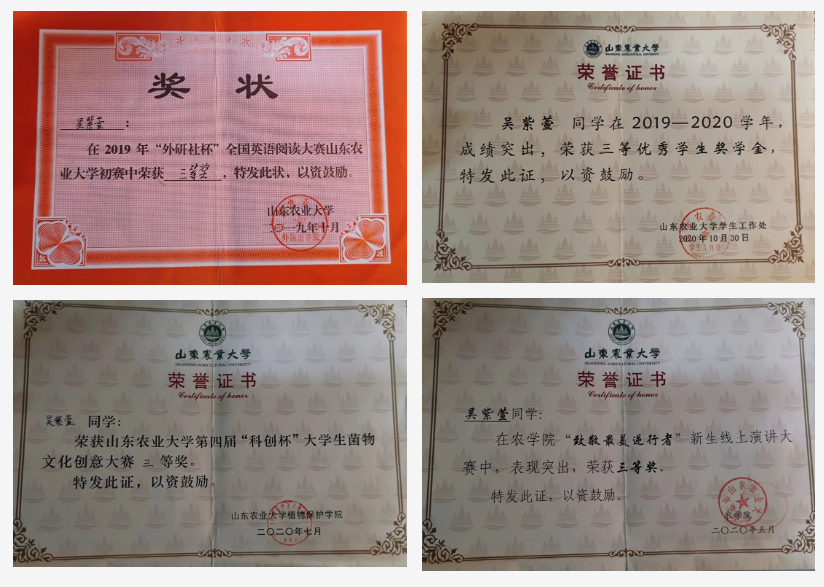 奖 状
吴紫萱:
在 2019 年“外研社杯”全国英语阅读大赛山东农
业大学初赛中荣获 三等奖,特发此状,以资鼓励。
山东农业大学
二〇一九年十月
外国语学院
山东农业大学
SHANDONG AGRICULTURAL UNIVERSITY
荣誉证书
Certificate of honor
吴紫萱 同学在 2019—2020 学年,
成绩突出,荣获三等优秀学生奖学金,
特发此证,以资鼓励。
山东农业大学学生工作处
2020 年 10 月 30 日
山東農業大學
SHANDONG AGRICULTURAL UNIVERSITY
荣誉证书
Certificate of honor
吴紫萱 同学:
荣获山东农业大学第四届“科创杯”大学生菌物
文化创意大赛 三 等奖。
特发此证,以资鼓励。
山东农业大学植物保护学院
二〇二〇年七月
山東農業大學
SHANDONG AGRICULTURAL UNIVERSITY
荣誉证书
Certificate of honor
吴紫萱同学:
在农学院“致敬最美逆行者”新生线上演讲大
赛中,表现突出,荣获三等奖。
特发此证,以资鼓励。
农学院
二〇二〇年五月